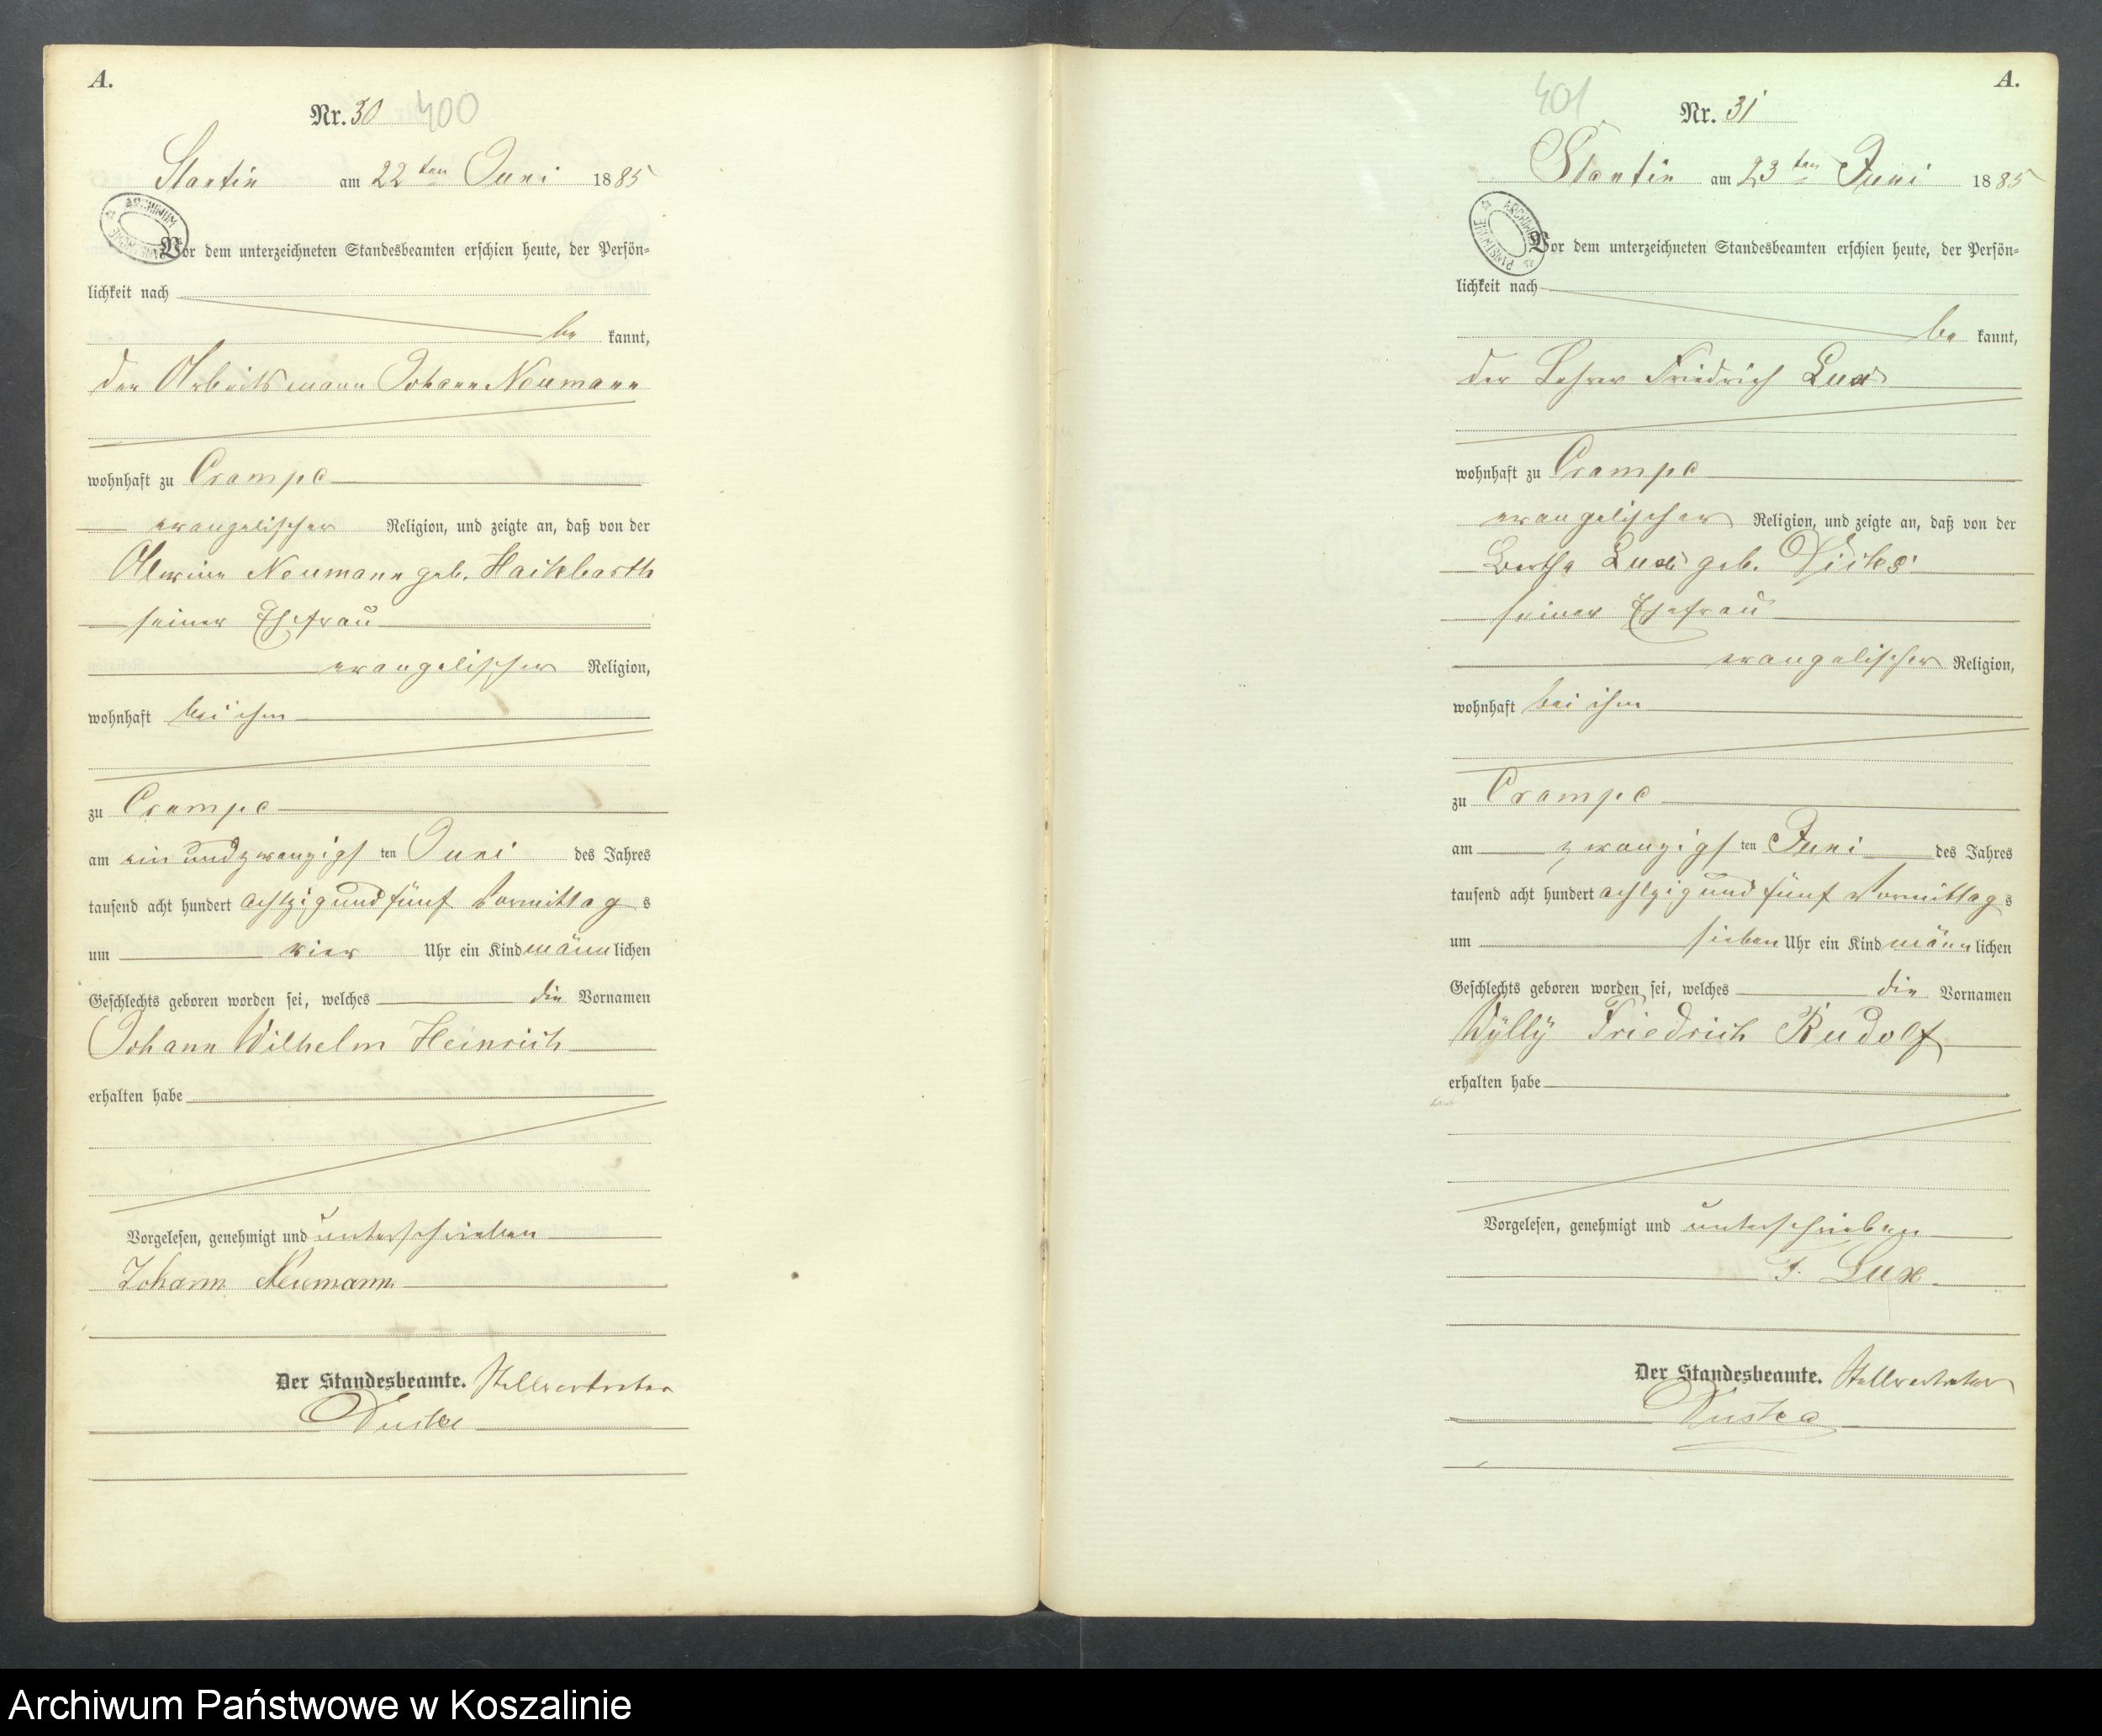 A.
Nr. 30 400
Stantin am 22ten Juni 1885
ARCHIWUM PAŃSTWOWE
Vor dem unterzeichneten Standesbeamten erschien heute, der Persön=
lichkeit nach
be kannt,
der Arbeitsmann Johann Neumann
wohnhaft zu Crampe
evangelischer Religion, und zeigte an, daß von der
Alwine Neumann geb. Hackbarth
seiner Ehefrau
evangelischer Religion,
wohnhaft bei ihm
zu Crampe
am ein und zwanzigs ten Juni des Jahres
tausend acht hundert achtzig und fünf Vormittag s
um vier Uhr ein Kind männ lichen
Geschlechts geboren worden sei, welches die Vornamen
Johann Wilhelm Heinrich
erhalten habe
Vorgelesen, genehmigt und unterschrieben
Johann Neumann
Der Standesbeamte. Stellvertreter
A.
401 Nr. 31
Stantin am 23ten Juni 1885
ARCHIWUM PAŃSTWOWE
Vor dem unterzeichneten Standesbeamten erschien heute, der Persön=
lichkeit nach
be kannt,
der Lehrer Friedrich Lux
wohnhaft zu Crampe
evangelischer Religion, und zeigte an, daß von der
Bertha Lux geb.
seiner Ehefrau
evangelischer Religion,
wohnhaft bei ihm
zu Crampe
am zwanzigs ten Juni des Jahres
tausend acht hundert achtzig und fünf Vormittag s
um sieben Uhr ein Kind männ lichen
Geschlechts geboren worden sei, welches die Vornamen
Wylly Friedrich Rudolf
erhalten habe
Vorgelesen, genehmigt und unterschrieben
F. Lux
Der Standesbeamte. Stellvertreter
Archiwum Państwowe w Koszalinie